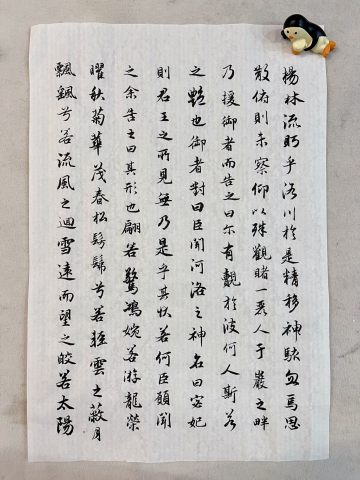 楊林流眄乎洛川於是精移神駭忽焉思
散俯則未察仰以殊觀睹一麗人于巖之畔
乃援御者而告之曰尔有覿於彼何人斯若
之艷也御者對曰臣聞河洛之神名曰宓妃
則君王之所見無乃是乎其狀若何臣願聞
之余告之曰其形也翩若驚鴻婉若游龍榮
曜秋菊華茂春松髣髴兮若輕雲之蔽月
飄颻兮若流風之迴雪遠而望之皎若太陽